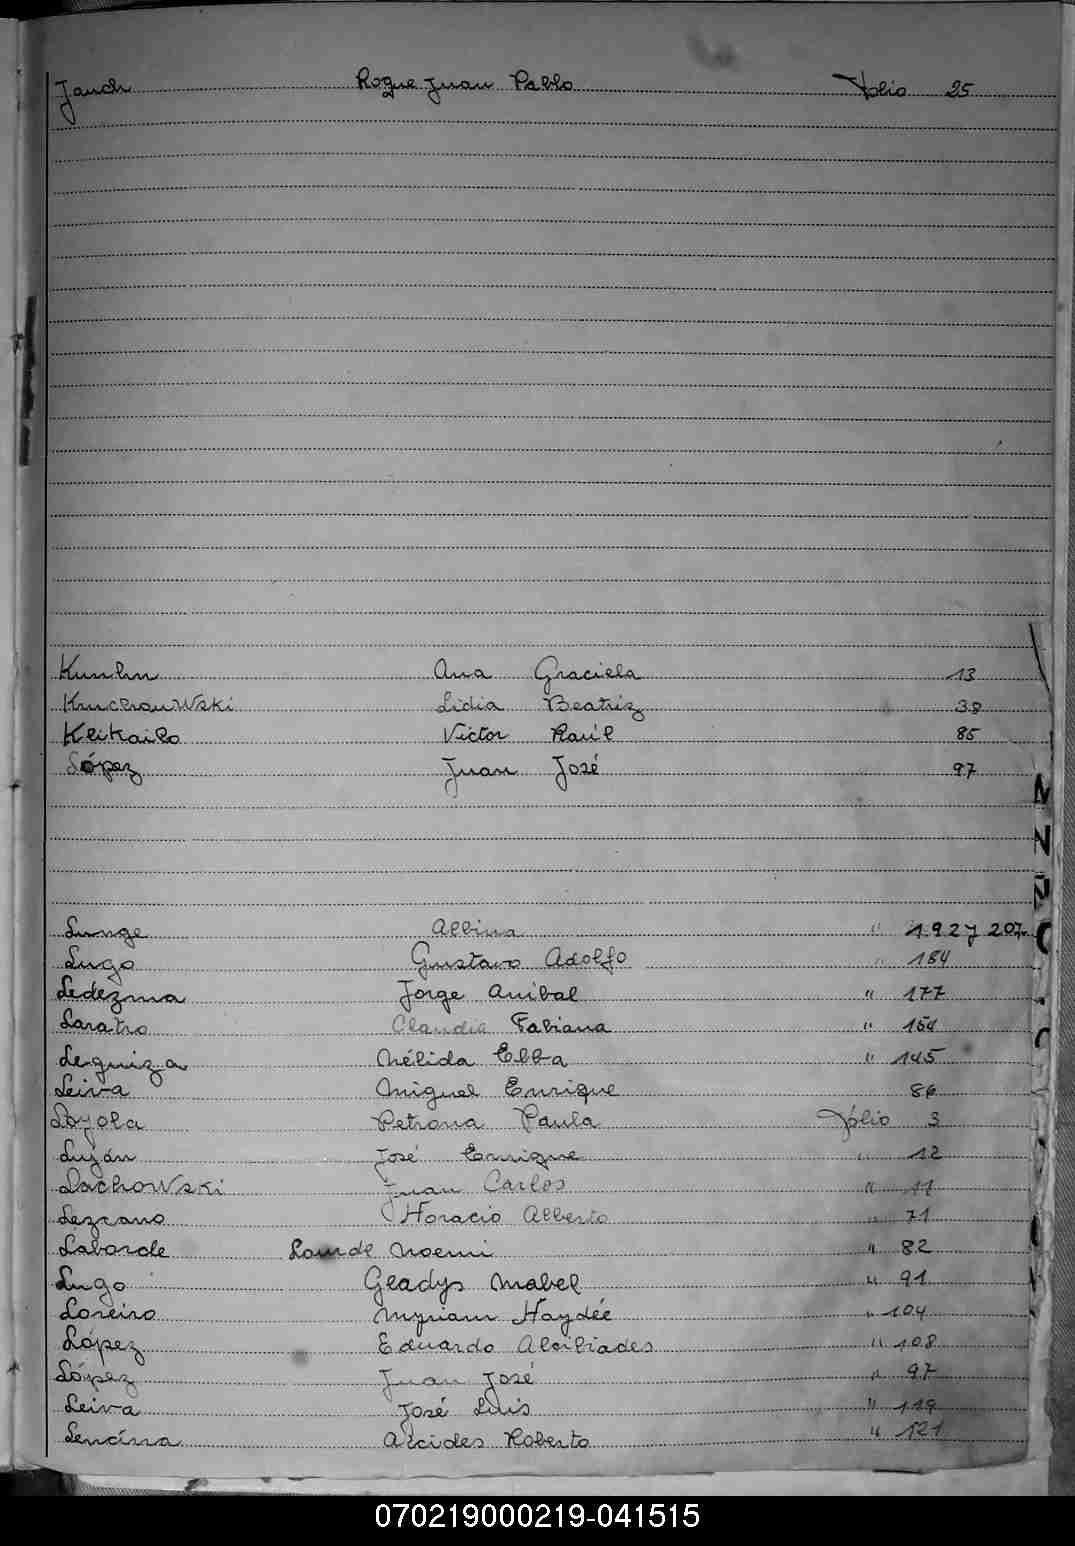 Jauch Roque Juan Pablo Folio 25
Kunhn Ana Graciela 13
Kruchowski Lidia Beatriz 38
Klikailo Victor Raúl 85
López Juan José 97
Lunge Albina " 192 y 207
Lugo Gustavo Adolfo " 184
Ledezma Jorge Anibal " 177
Laratro Claudia Fabiana " 164
Leguiza Nélida Elba " 145
Leiva Miguel Enrique 86
Loyola Petrona Paula Folio 3
Luján José Enrique " 12
Lachowski Juan Carlos " 11
Lezcano Horacio Alberto " 71
Laborde Lourde Noemi " 82
Lugo Gladys Mabel " 91
Loreiro Myriam Haydée " 104
López Eduardo Alcibiades " 108
López Juan José " 97
Leiva José Luis " 119
Lencina Alcides Roberto " 121
N
N
Ñ
070219000219-041515